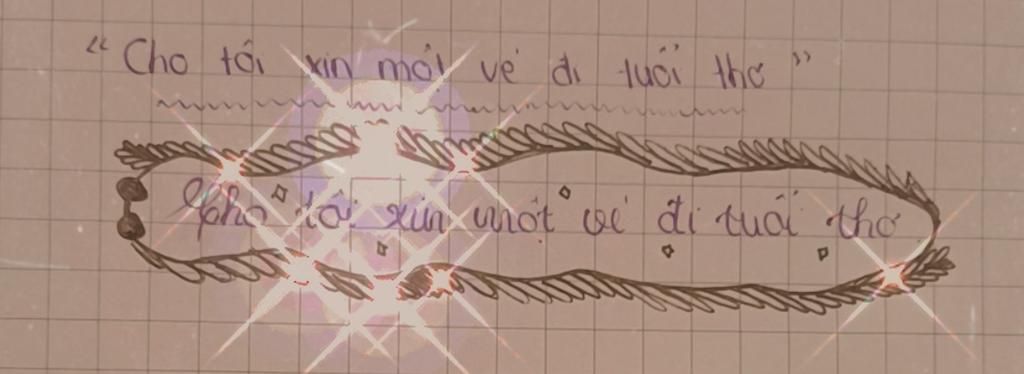 “Cho tôi xin một vé đi tuổi thơ”
Cho tôi xin một vé đi tuổi thơ